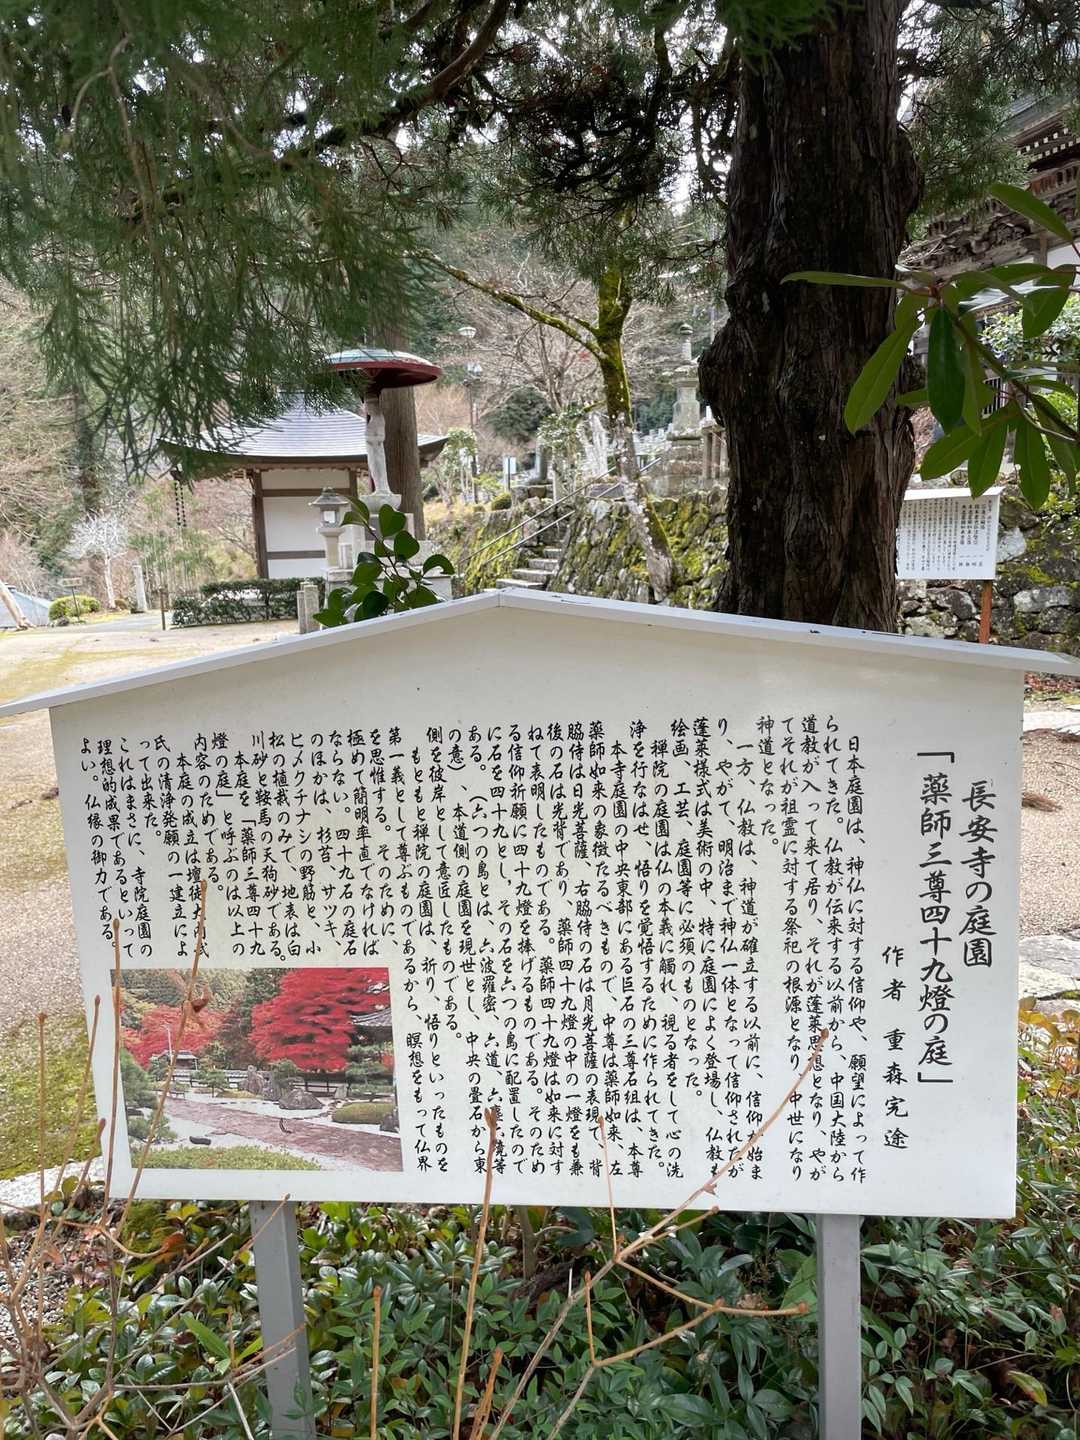 長安寺の庭園
「薬師三尊四十九燈の庭」
作者 重森完途
日本庭園は、神仏に対する信仰や、願望によって作
られてきた。仏教が伝来する以前から、中国大陸から
道教が入って来て居り、それが蓬莱思想となり、やが
てそれが祖霊に対する祭祀の根源となり、中世になり
神道となった。
一方、仏教は、神道が確立する以前に、信仰が始ま
り、やがて、明治まで神仏一体となって信仰されたが
蓬莱様式は美術の中、特に庭園によく登場し、仏教も
絵画、工芸、庭園等に必須のものとなった。
禅院の庭園は仏の本義に觸れ、視る者をして心の洗
浄を行なはせ、悟りを覚悟するために作られてきた。
本寺庭園の中央東部にある巨石の三尊石組は、本尊
薬師如来の象徴たるべきもので、中尊は薬師如来、左
脇侍は日光菩薩、右脇侍の石は月光菩薩の表現で、背
後の石は光背であり、薬師四十九燈の中の一燈をも兼
ねて表明したものである。薬師四十九燈は如来に対す
る信仰祈願に四十九燈を捧げるものである。そのため
に石を四十九とし、その石を六つの島に配置したので
ある。(六つの島とは、六波羅密、六道、六塵六境等
の意)、本道側の庭園を現世とし、中央の畳石から東
側を彼岸として意匠したものである。
もともと禅院の庭園は、祈り、悟りといったものを
第一義として尊ぶものであるから、瞑想をもって仏界
を思惟する。そのために、
極めて簡明率直でなければ
ならない。四十九石の庭石
のほかは、杉苔、サツキ、
ヒメクチナシの野筋と、小
松の植栽のみで、地表は白
川砂と鞍馬の天狗砂である。
本庭を、「薬師三尊四十九
燈の庭」と呼ぶのは以上の
内容のためである。
本庭の成立は壇徒大内武
氏の清浄発願の一建立によ
って出来た。
これはまさに、寺院庭園の
理想的成果であるといって
よい。仏縁の御力である。